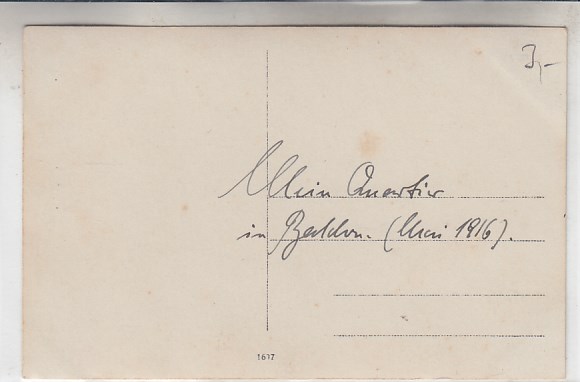 3,-
Mein Quartier
in (Mai 1916).
1617